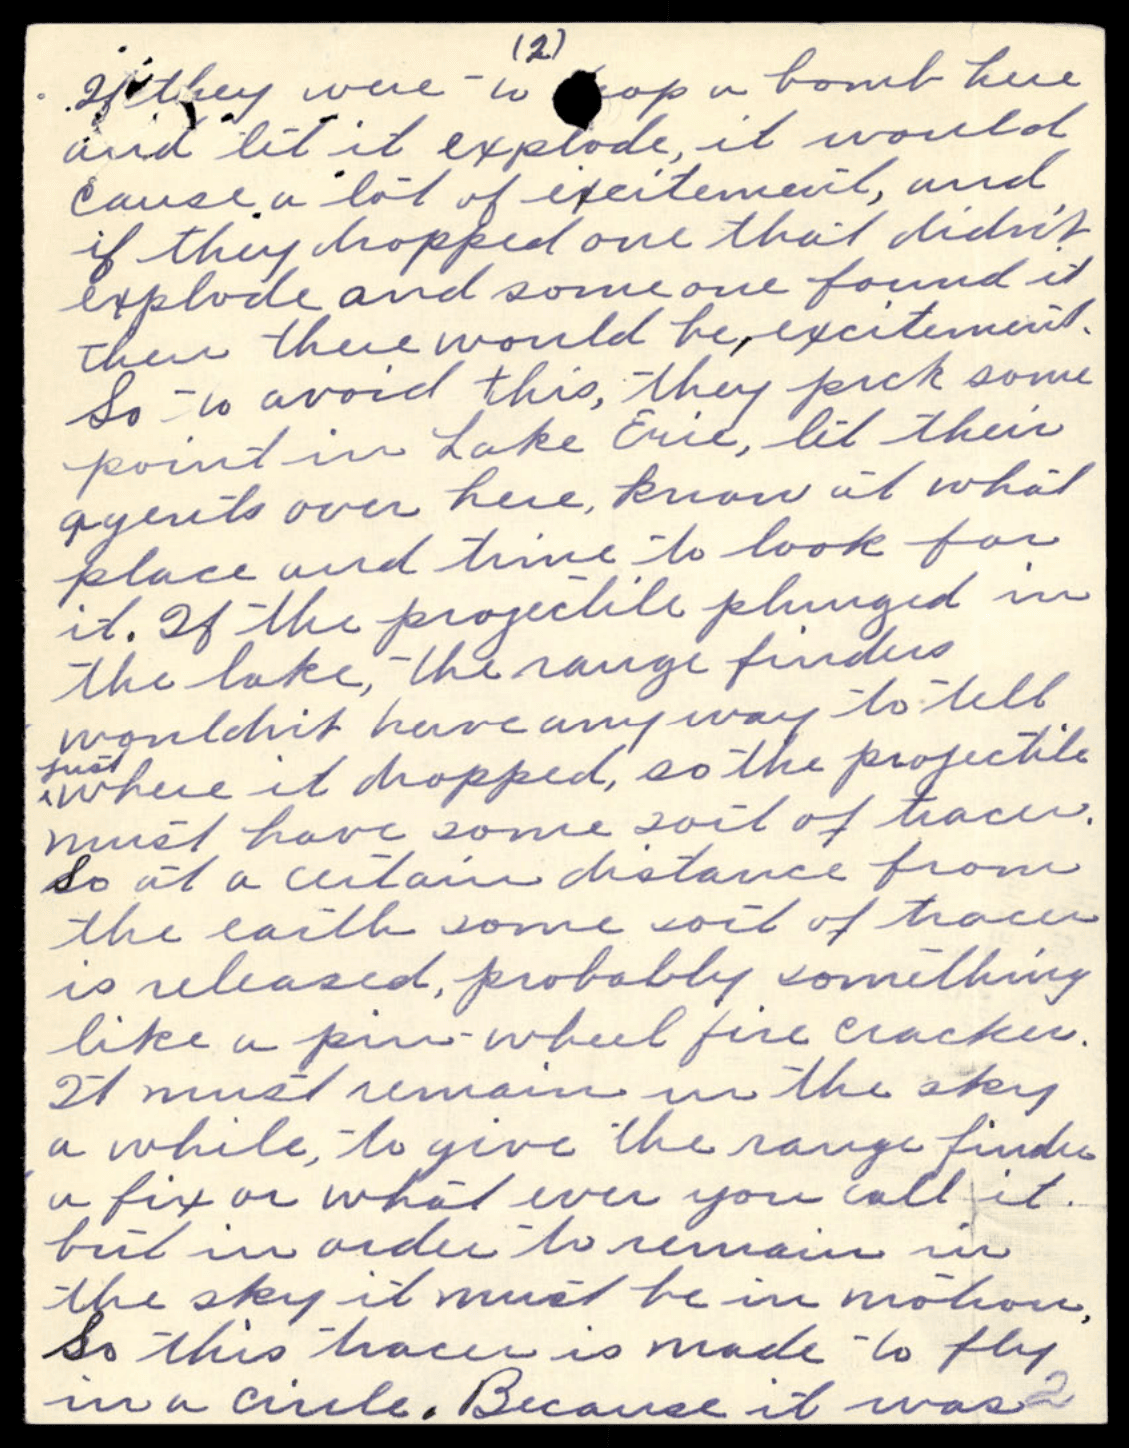 (2)
If they were to a bomb here
and let it explode, it would
cause a lot of excitement, and
if they dropped one that didn't
explode and someone found it
then there would be, excitement.
So to avoid this, they pick some
point in Lake Erie, let their
agents over here, know at what
place and time to look for
it. If the projectile plunged in
the lake, the range finders
wouldn't have any way to tell
just
where it dropped, so the projectile
must have some sort of tracer.
So at a certain distance from
the earth some sort of tracer
is released, probably something
like a pin-wheel fire cracker.
It must remain in the sky
a while, to give the range finder
a fix or what ever you call it.
but in order to remain in
the sky it must be in motion,
So this tracer is made to fly
in a circle. Because it was
2